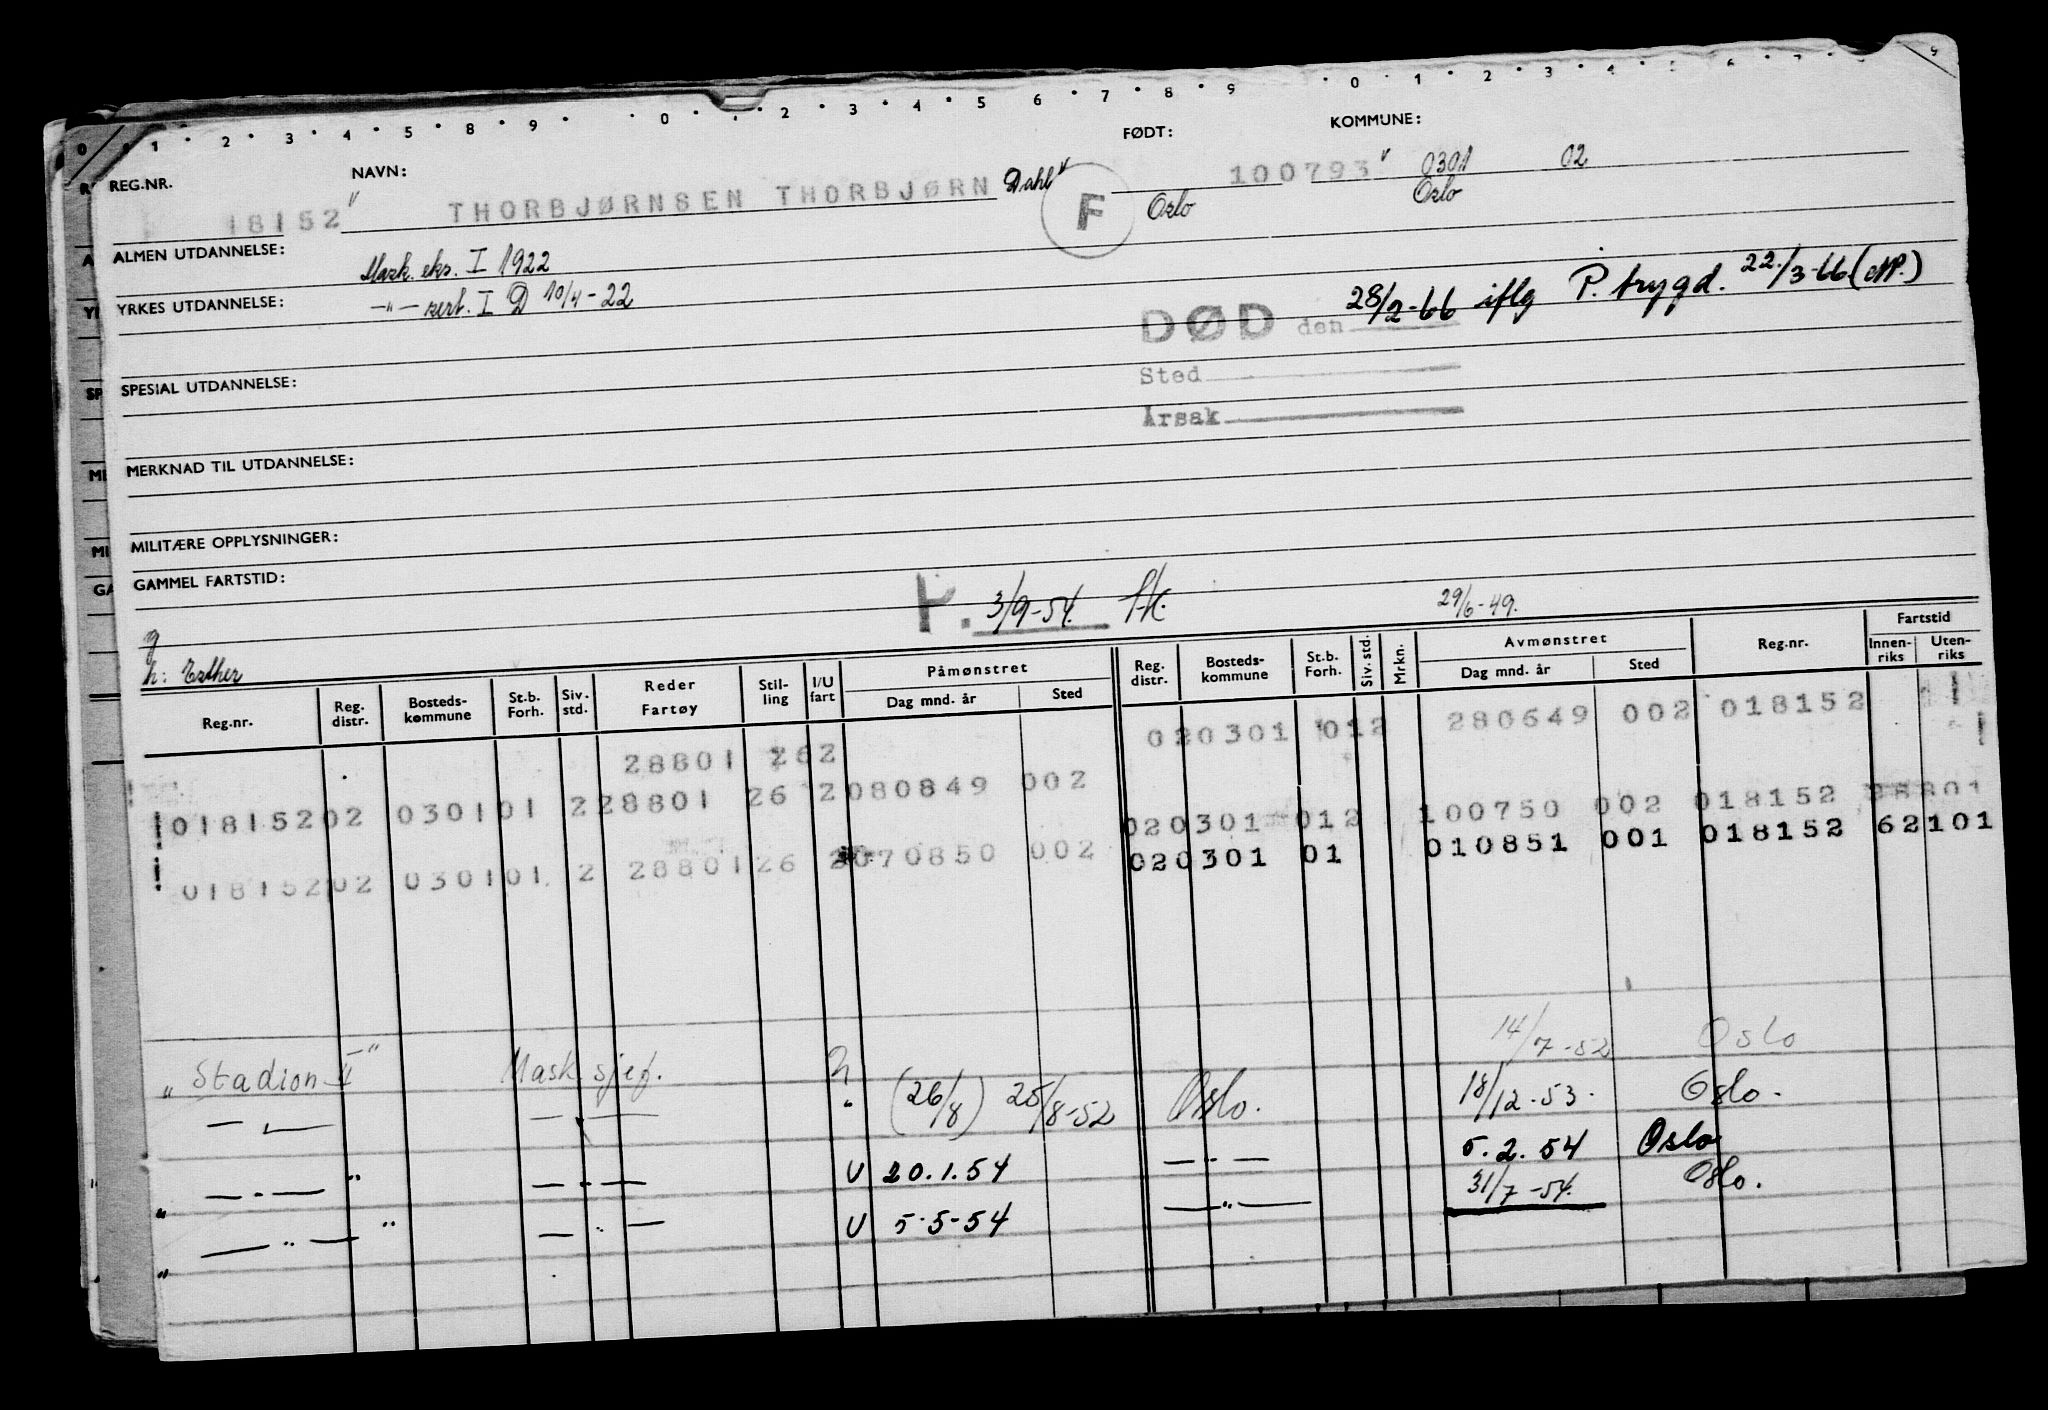 0 1 2 3 4 5 8 9 0 2 3 4 5 6 7 8 9 0 1 2 3 4 5 6 7 9
REG.NR. NAVN: FØDT: KOMMUNE:
18152 THORBJØRNSEN THORBJØRN Dahl F 100793 0301 02
Oslo Oslo
ALMEN UTDANNELSE: Mask. eks. I 1922
YRKES UTDANNELSE: —"— sert. I D 10/4-22
DØD den 28/2-66 iflg P. trygd. 22/3-66
Sted
Årsak
SPESIAL UTDANNELSE:
MERKNAD TIL UTDANNELSE:
MILITÆRE OPPLYSNINGER:
GAMMEL FARTSTID:
P. 3/9-54. 29/6-49.
g
h: Esther
Reg.nr. Reg. distr. Bosteds-kommune St.b. Forh. Siv. std. Reder Fartøy Stil-ling I/U fart Påmønstret Dag mnd. år Sted Reg. distr. Bosteds-kommune St.b. Forh. Siv. std. Mrkn. Avmønstret Dag mnd. år Sted Reg.nr. Fartstid Innen-riks Uten-riks
28801 26 2 020301 012 280649 002 018152
018152 02 0301 01 2 28801 26 2 080849 002 020301 012 100750 002 018152 28801
018152 02 0301 01 2 28801 26 2 070850 002 020301 01 010851 001 018152 62101
14/7-52 Oslo
"Stadion II" Mask.sjef. (26/8) 25/8-52 Oslo. 18/12-53. Oslo.
— " — — " — U 20.1.54 — " — 5.2.54 Oslo
" — " — " — " — U 5-5-54 — " — 31/7-54. Oslo.